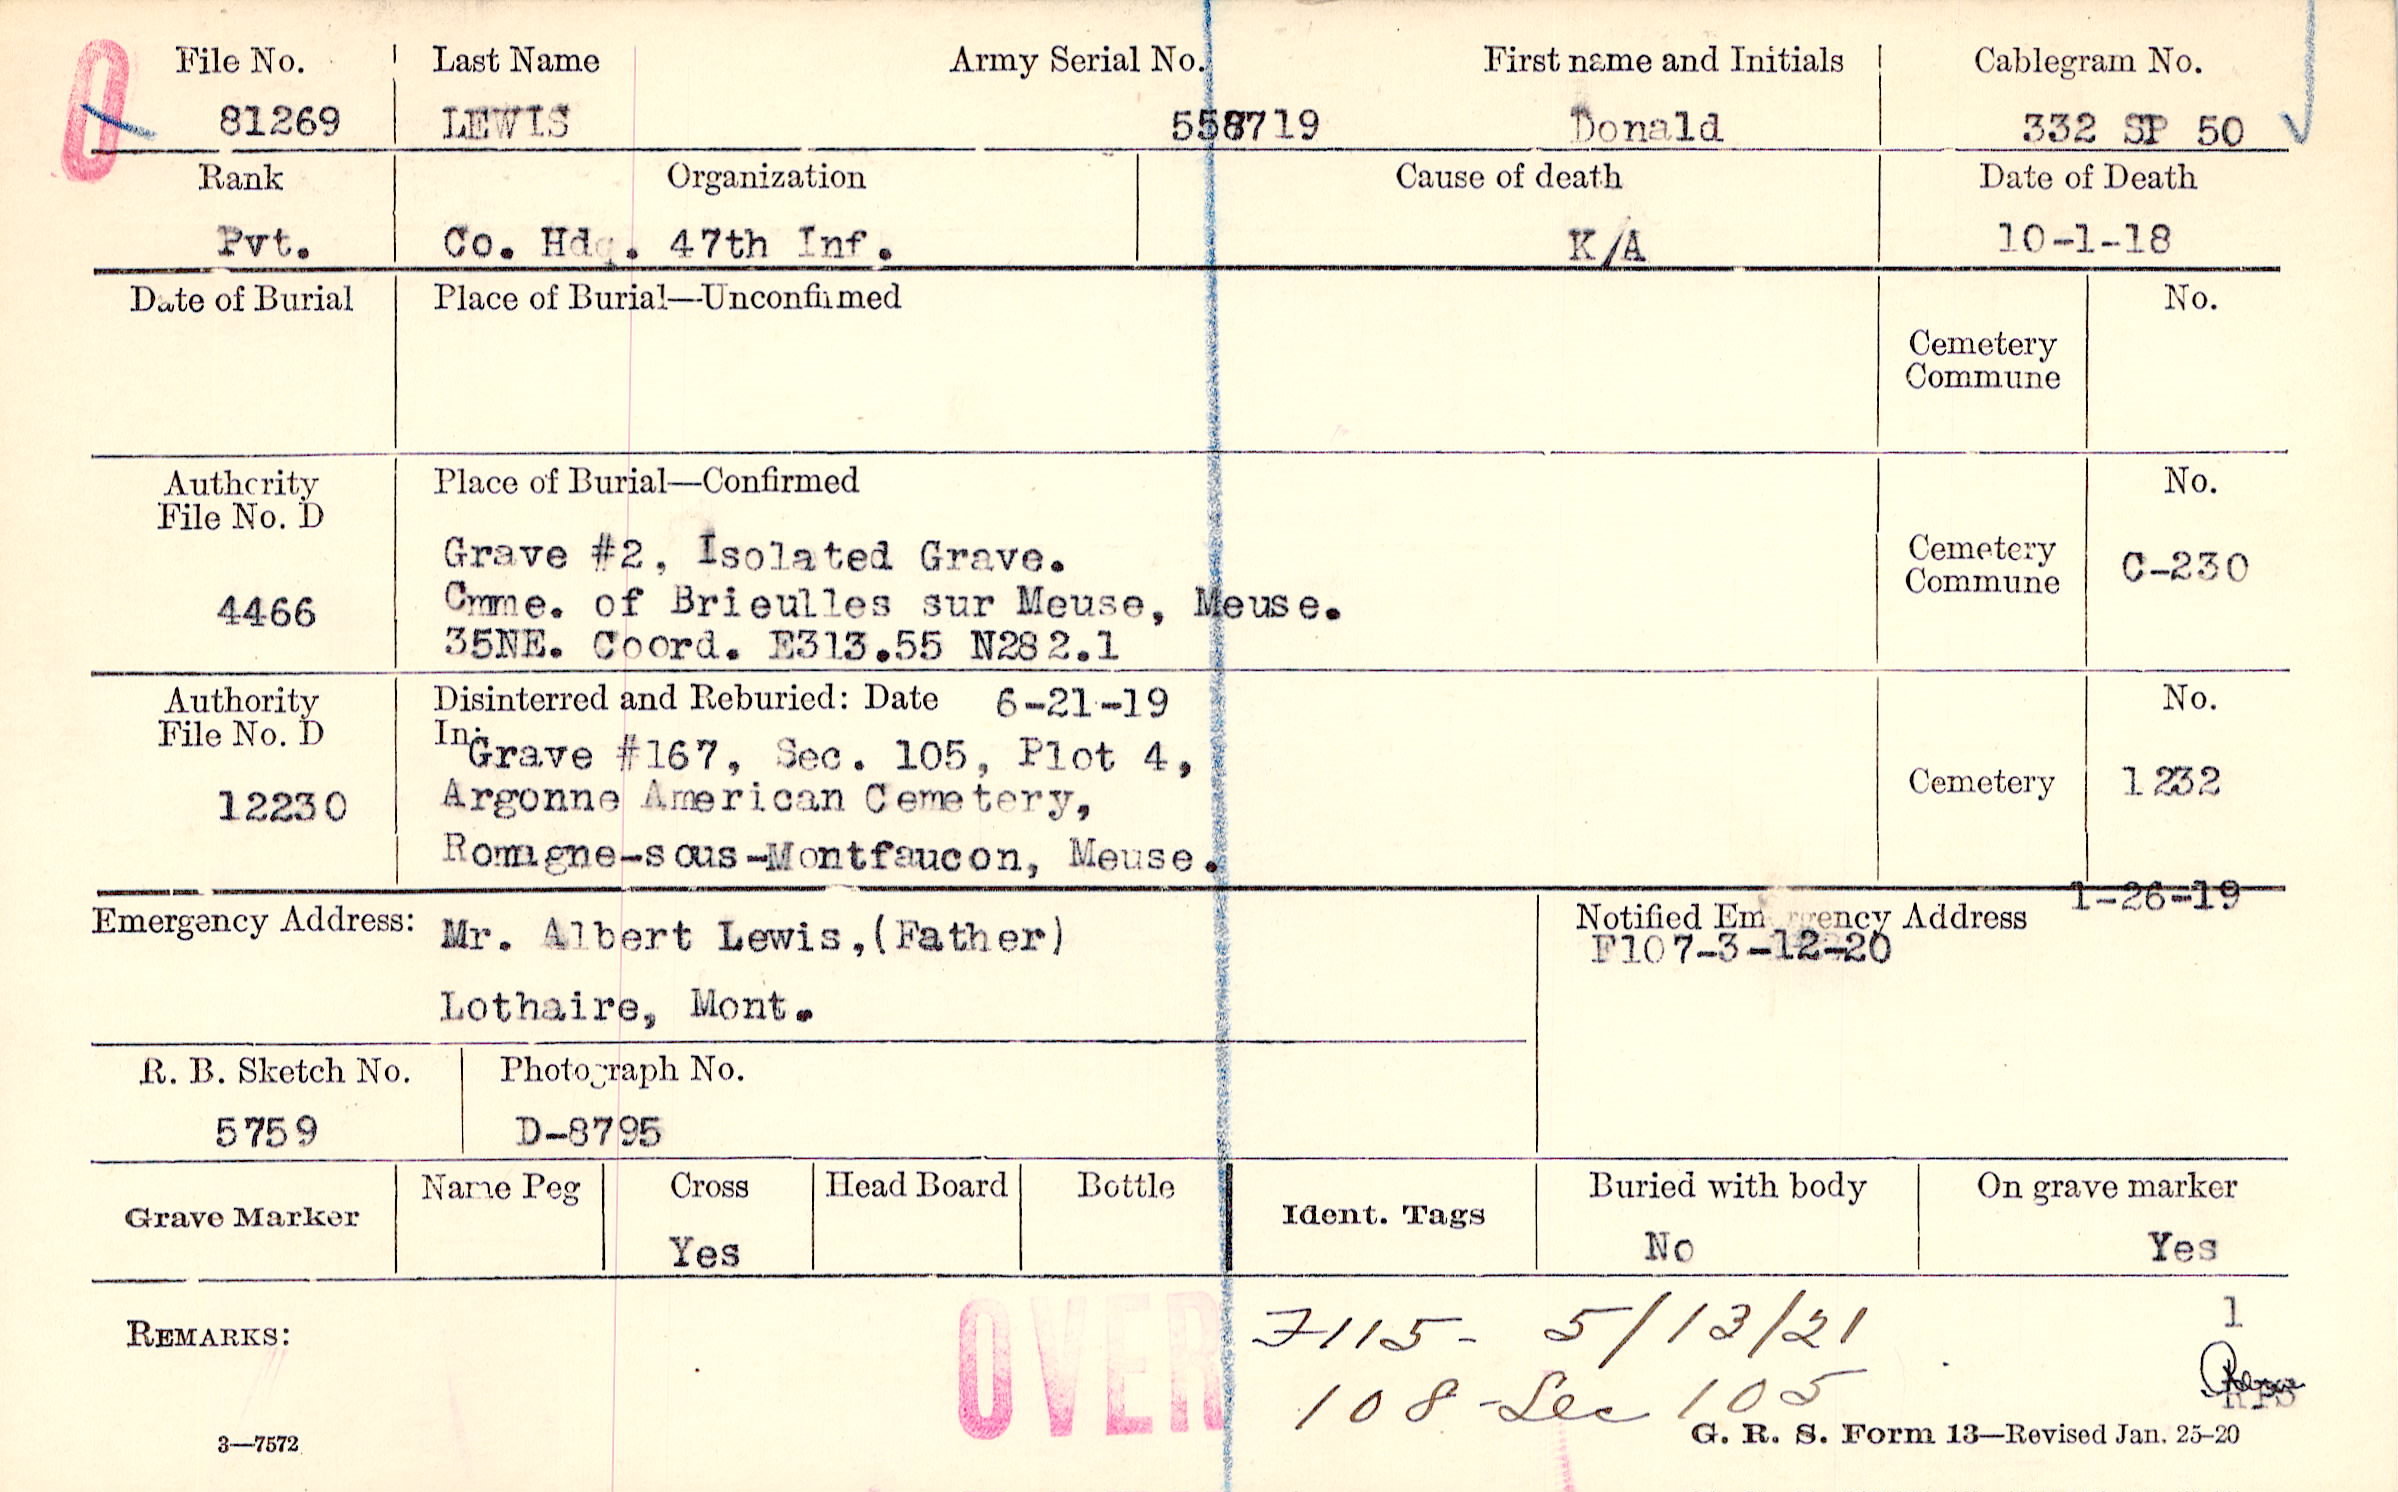 O
File No. Last Name Army Serial No. First name and Initials Cablegram No.
81269 LEWIS 558719 Donald 332 SP 50
Rank Organization Cause of death Date of Death
Pvt. Co. Hdq. 47th Inf. K/A 10-1-18
Date of Burial Place of Burial—Unconfirmed No.
Cemetery
Commune
Authority Place of Burial—Confirmed No.
File No. D
Grave #2, Isolated Grave.
Cemetery
Commune C-230
4466 Cmme. of Brieulles sur Meuse, Meuse.
35NE. Coord. E313.55 N282.1
Authority Disinterred and Reburied: Date 6-21-19 No.
File No. D In:
Grave #167, Sec. 105, Plot 4,
12230 Argonne American Cemetery, Cemetery 1232
Romagne-sous-Montfaucon, Meuse.
1-26-19
Emergency Address: Mr. Albert Lewis,(Father) Notified Emergency Address
F107-3-12-20
Lothaire, Mont.
R. B. Sketch No. Photograph No.
5759 D-8795
Grave Marker Name Peg Cross Head Board Bottle Ident. Tags Buried with body On grave marker
Yes No Yes
REMARKS: OVER F115- 5/13/21 1
108-Sec 105
3—7572 G. R. S. Form 13—Revised Jan. 25-20